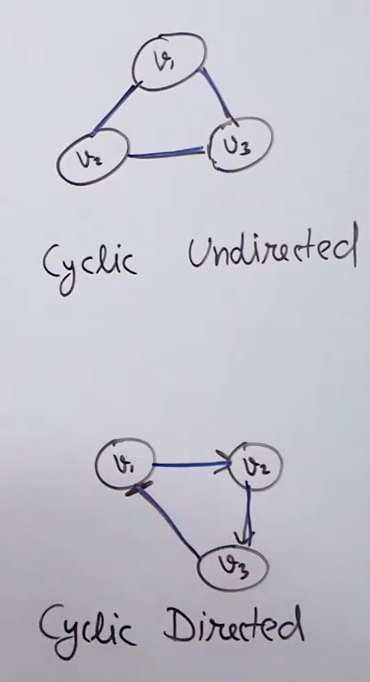 v₁
v₂ v₃
Cyclic Undirected
v₁ v₂
v₃
Cyclic Directed